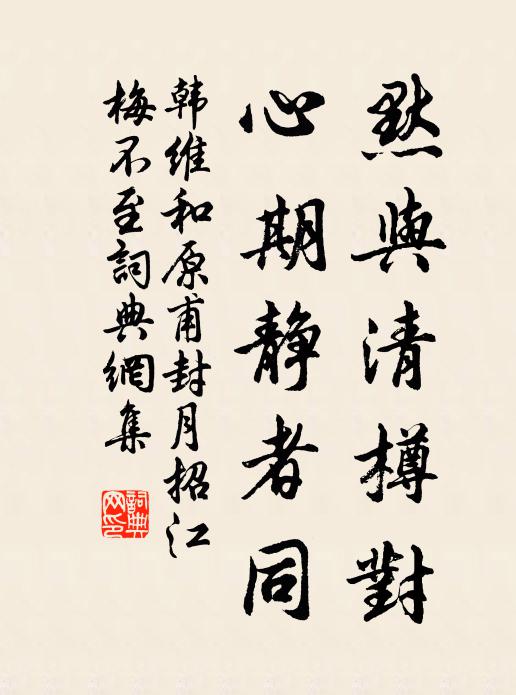 默與清樽對
心期靜者同
韩維和原甫封月招江
梅不至詞典網集
詞典
网印